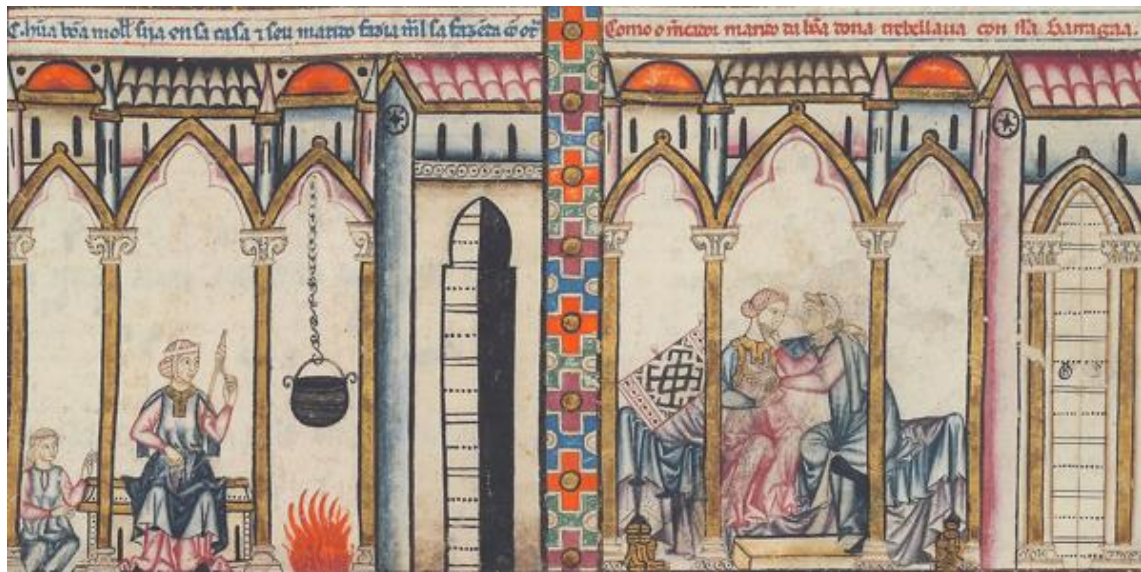 C. hũa bõa moll̃ sija en sa casa ⁊ seu marido fazia m̃l sa fazẽda cõ
Como o m̃cador marido da bõa dona trebellaua con ssa barragãa.